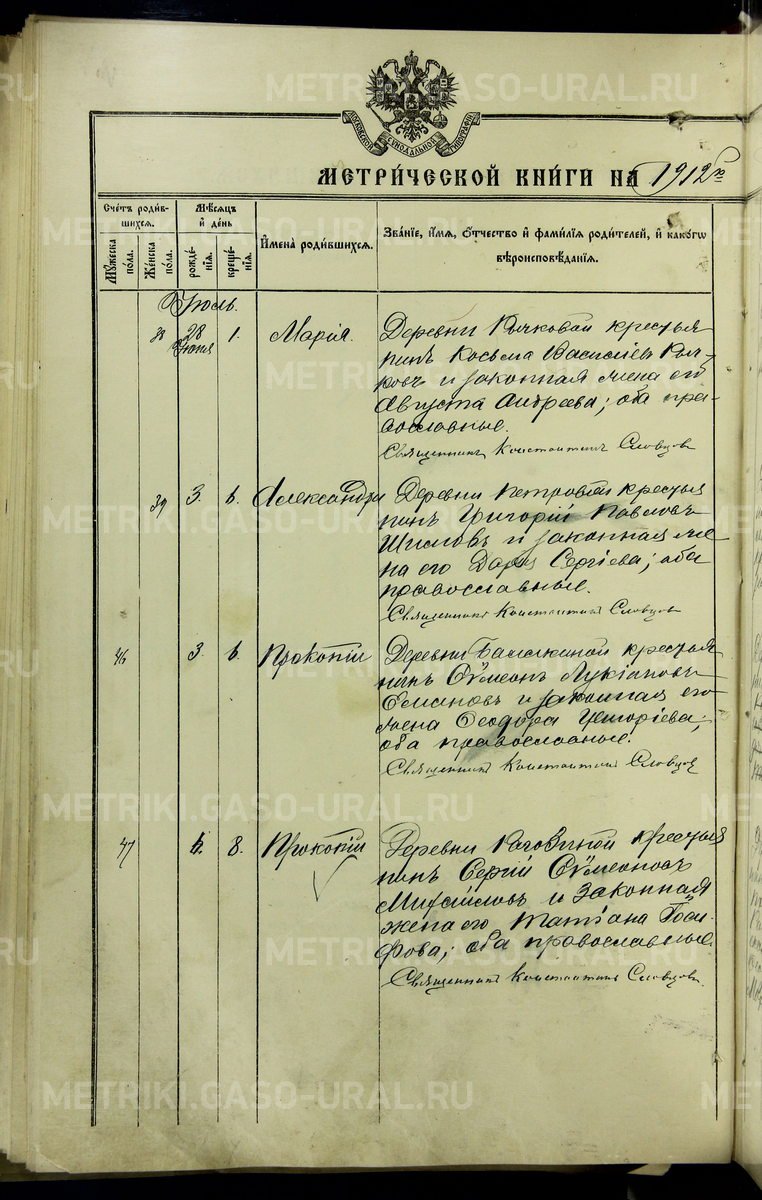 METRIKI.GASO-URAL.RU
МОСКОВСКОЙ СѴНОДАЛЬНОЙ ТИПОГРАФІИ
МЕТРИ́ЧЕСКОЙ КНИ́ГИ НА 1912 г.
Сче́тъ роди́в-
шихся.
Мꙋ́жеска по́ла.
Же́нска по́ла.
Мѣ́сяцъ
и҆ де́нь
рожде́-
нія.
креще́-
нія.
И҆мена̀ роди́вшихся.
Зва́ніе, и҆́мя, ѻ҆́тчество и҆ фами́лія роди́телей, и҆ како́гѡ
вѣроисповѣ́данія.
Іюль.
38 28 Іюня 1. Марія.
Деревни крестья-
нинъ Косьма Васильевъ
и законная жена его
Августа Андреева; оба пра-
вославные.
Священникъ Константинъ Словцовъ
39 3. 6. Александра
Деревни Петровой крестья
нинъ Григорій Павловъ
Шиловъ и законная же
на его Дарья Сергіева; оба
православные.
Священникъ Константинъ Словцовъ
46 3. 6. Прокопій
Деревни крестья
нинъ Сѵмеонъ Лукіановъ
и законная его
жена Ѳеодора Григоріева;
оба православные.
Священникъ Константинъ Словцов
47 8. Прокопій
Деревни крестья
нинъ Сергій Сѵмеоновъ
Михайловъ и законная
жена его Татіана Іоси-
фова; оба православные
Священникъ Константинъ Словцовъ.